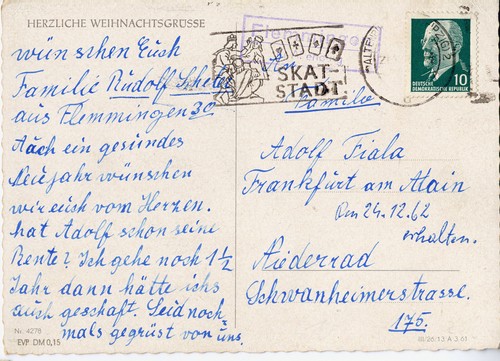 HERZLICHE WEIHNACHTSGRÜSSE
wünschen Euch
Familie Rudolf
aus Flemmingen 30
Auch ein gesundes
Neujahr wünschen
wir euch vom Herzen.
hat Adolf schon seine
Rente? Ich gehe noch 1 1/2
Jahr dann hätte ichs
auch geschaft. Seid noch-
mals gegrüst von uns.
Nr. 4278
EVP DM 0,15
SKAT-
STADT
DEUTSCHE
DEMOKRATISCHE REPUBLIK
10
An
Familie
Adolf Fiala
Frankfurt am Main
Am 24.12.62
erhalten.
Niederrad
Schwanheimerstrasse.
175.